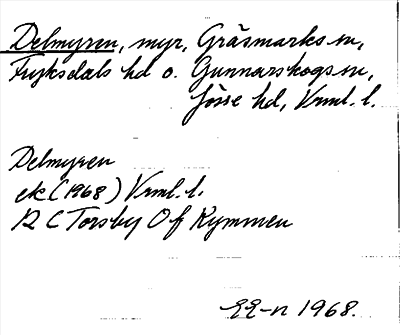 Delmyren, myr, Gräsmarks sn,
Fryksdals hd o. Gunnarskogs sn,
Jösse hd, Vrml. l.
Delmyren
ek (1968) Vrml. l.
12 C Torsby Of Rymmen
EE-n 1968.